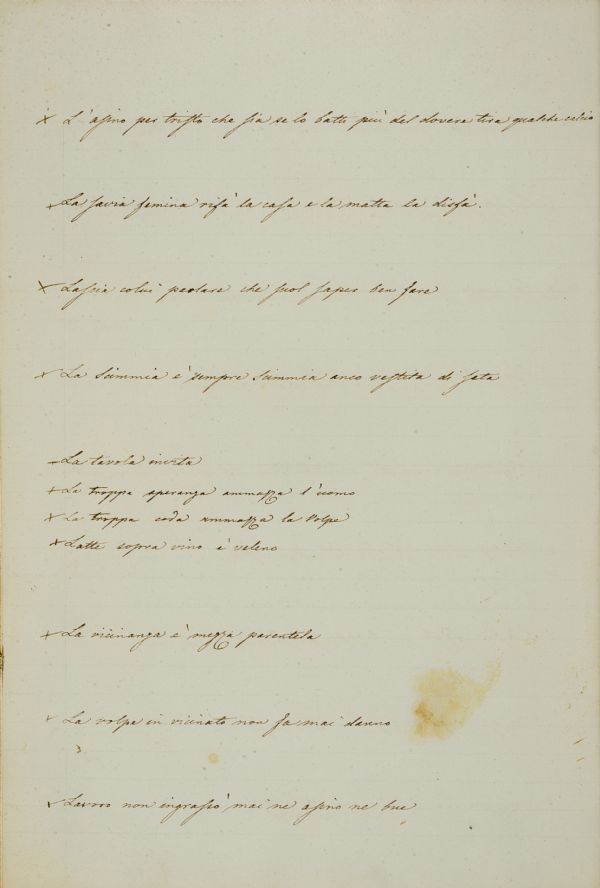 × L'asino per tristo che sia se lo batti più del dovere tira qualche calcio
× La savia femina rifà la casa e la matta la disfà.
× Lascia colui parlare che suol saper ben fare
× La Scimmia è sempre Scimmia anco vestita di seta
× La tavola invita
× La troppa speranza ammazza l'uomo
× La troppa coda ammazza la Volpe
× Latte sopra vino è veleno
× La vicinanza è mezza parentela
× La volpe in vicinato non fa mai danno
× Lavoro non ingrassò mai ne asino ne bue